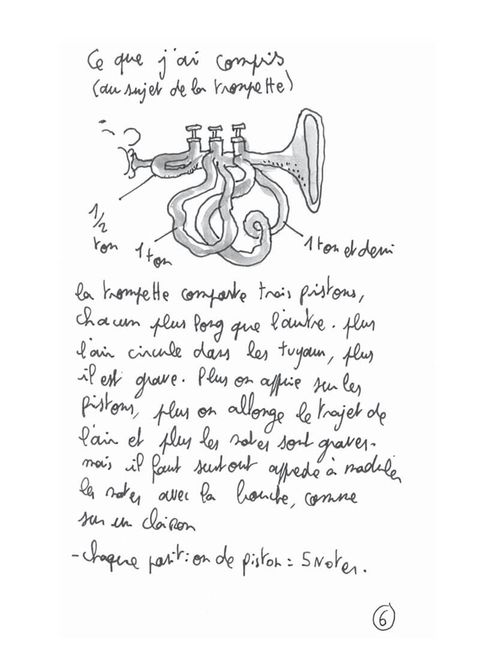 Ce que j'ai compris
(au sujet de la trompette)
1/2
ton
1 ton
1 ton et demi
la trompette comporte trois pistons,
chacun plus long que l'autre. plus
l'air circule dans les tuyaux, plus
il est grave. Plus on appuie sur les
pistons, plus on allonge le trajet de
l'air et plus les notes sont graves.
mais il faut surtout apprendre à moduler
les notes avec la bouche, comme
sur un clairon
- chaque position de piston = 5 notes.
6